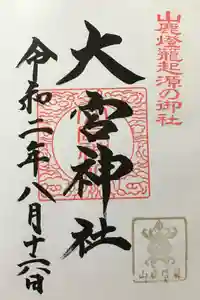 山鹿燈籠起源の御社
大宮神社
令和二年八月十六日